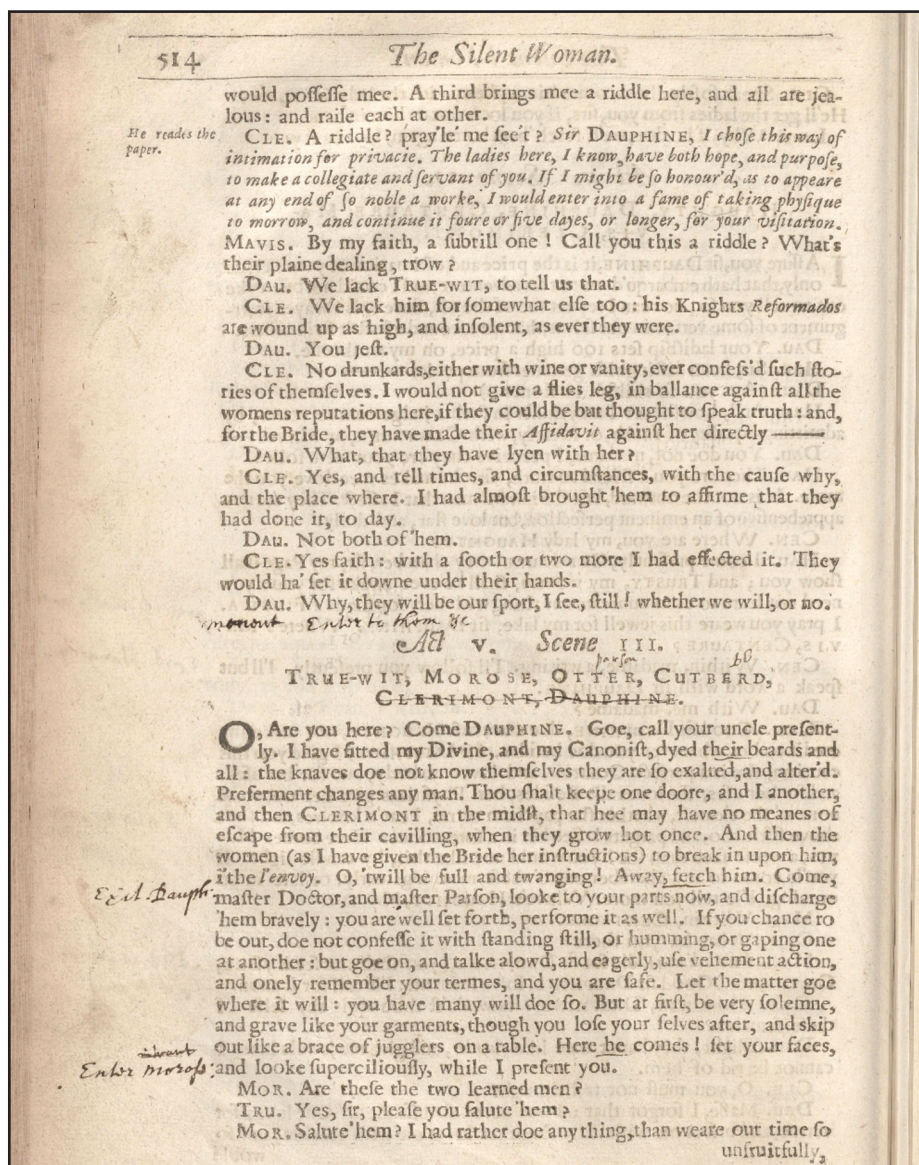 514
The Silent Woman.
would poſſeſſe mee. A third brings mee a riddle here, and all are jea-
lous: and raile each at other.
He reades the
paper.
CLE. A riddle? pray'le' me ſee't? Sir DAUPHINE, I choſe this way of
intimation for privacie. The ladies here, I know, have both hope, and purpoſe,
to make a collegiate and ſervant of you. If I might be ſo honour'd, as to appeare
at any end of ſo noble a worke, I would enter into a fame of taking phyſique
to morrow, and continue it foure or five dayes, or longer, for your viſitation.
MAVIS. By my faith, a ſubtill one! Call you this a riddle? What's
their plaine dealing, trow?
DAU. We lack TRUE-WIT, to tell us that.
CLE. We lack him for ſomewhat elſe too: his Knights Reformados
are wound up as high, and inſolent, as ever they were.
DAU. You jeſt.
CLE. No drunkards, either with wine or vanity, ever confeſs'd ſuch ſto-
ries of themſelves. I would not give a flies leg, in ballance againſt all the
womens reputations here, if they could be but thought to ſpeak truth: and,
for the Bride, they have made their Affidavit againſt her directly ———
DAU. What, that they have lyen with her?
CLE. Yes, and tell times, and circumſtances, with the cauſe why,
and the place where. I had almoſt brought 'hem to affirme that they
had done it, to day.
DAU. Not both of 'hem.
CLE. Yes faith: with a ſooth or two more I had effected it. They
would ha' ſet it downe under their hands.
DAU. Why, they will be our ſport, I ſee, ſtill! whether we will, or no.
Enter to them &c
Act V. Scene III.
parson
TRUE-WIT, MOROSE, OTTER, CUTBERD,
CLERIMONT, DAUPHINE.
O, Are you here? Come DAUPHINE. Goe, call your uncle preſent-
ly. I have fitted my Divine, and my Canoniſt, dyed their beards and
all: the knaves doe not know themſelves they are ſo exalted, and alter'd.
Preferment changes any man. Thou ſhalt keepe one doore, and I another,
and then CLERIMONT in the midſt, that hee may have no meanes of
eſcape from their cavilling, when they grow hot once. And then the
women (as I have given the Bride her inſtructions) to break in upon him,
i'the l'envoy. O, 'twill be full and twanging! Away, fetch him. Come,
Exit. Dauph
maſter Doctor, and maſter Parſon, looke to your parts now, and diſcharge
'hem bravely: you are well ſet forth, performe it as well. If you chance to
be out, doe not confeſſe it with ſtanding ſtill, or humming, or gaping one
at another: but goe on, and talke alowd, and eagerly, uſe vehement action,
and onely remember your termes, and you are ſafe. Let the matter goe
where it will: you have many will doe ſo. But at firſt, be very ſolemne,
and grave like your garments, though you loſe your ſelves after, and skip
out like a brace of jugglers on a table. Here he comes! ſet your faces,
Enter moroſs:
and looke ſuperciliouſly, while I preſent you.
MOR. Are theſe the two learned men?
TRU. Yes, ſir, pleaſe you ſalute 'hem?
MOR. Salute 'hem? I had rather doe any thing, than weare out time ſo
unfruitfully,